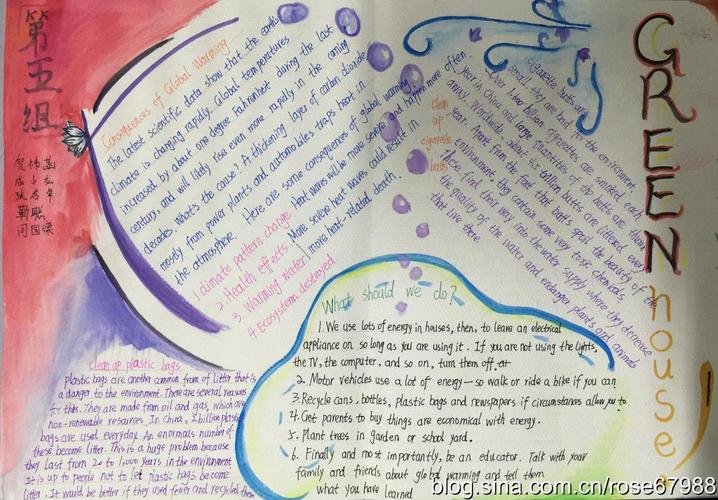 第五组
Consequences of Global Warming
The latest scientific data show that the earth's
climate is changing rapidly. Global temperatures
increased by about one degree Fahrenheit during the last
century, and will likely rise even more rapidly in the coming
decades. What's the cause? A thickening layer of carbon dioxide
mostly from power plants and automobiles traps heat in
the atmosphere. Here are some consequences of global warming.
1. climate pattern change
2. Health effects
3. Warming water
4. Ecosystems destroyed
Heat waves will be more severe and happen more often
More severe heat waves could result in
more heat-related death.
clean
up
cigarette
butts
cigarette butts are
small, they are bad for the environment.
Over 1,000 billion cigarettes are smoked each
year in China and many of the butts are thrown
away. Worldwide, about six trillion butts are littered every
year. Apart from the fact that butts spoil the beauty of the
environment, they contain some very toxic chemicals.
These find their way into the water supply where they decrease
the quality of the water and endanger plants and animals
that live there.
GREEN house
What should we do?
1. We use lots of energy in houses, then, to leave an electrical
appliance on so long as you are using it. If you are not using the lights,
the TV, the computer, and so on, turn them off.
2. Motor vehicles use a lot of energy — so walk or ride a bike if you can
3. Recycle cans, bottles, plastic bags and newspapers if circumstances allow you to
4. Get parents to buy things are economical with energy.
5. Plant trees in garden or school yard.
6. Finally and most importantly, be an educator. Talk with your
family and friends about global warming and tell them
what you have learned
clean up plastic bags
plastic bags are another common from of litter that is
a danger to the environment. There are several reasons
for this. They are made from oil and gas, which are
non-renewable resources. In China, 2 billion plastic
bags are used everyday. An enormous number of
these become litter. This is a huge problem because
they last from 20 to 1,000 years in the environment
It is up to people not to let plastic bags become
litter. It would be better if they used fewer and recycled them
blog.sina.com.cn/rose67988